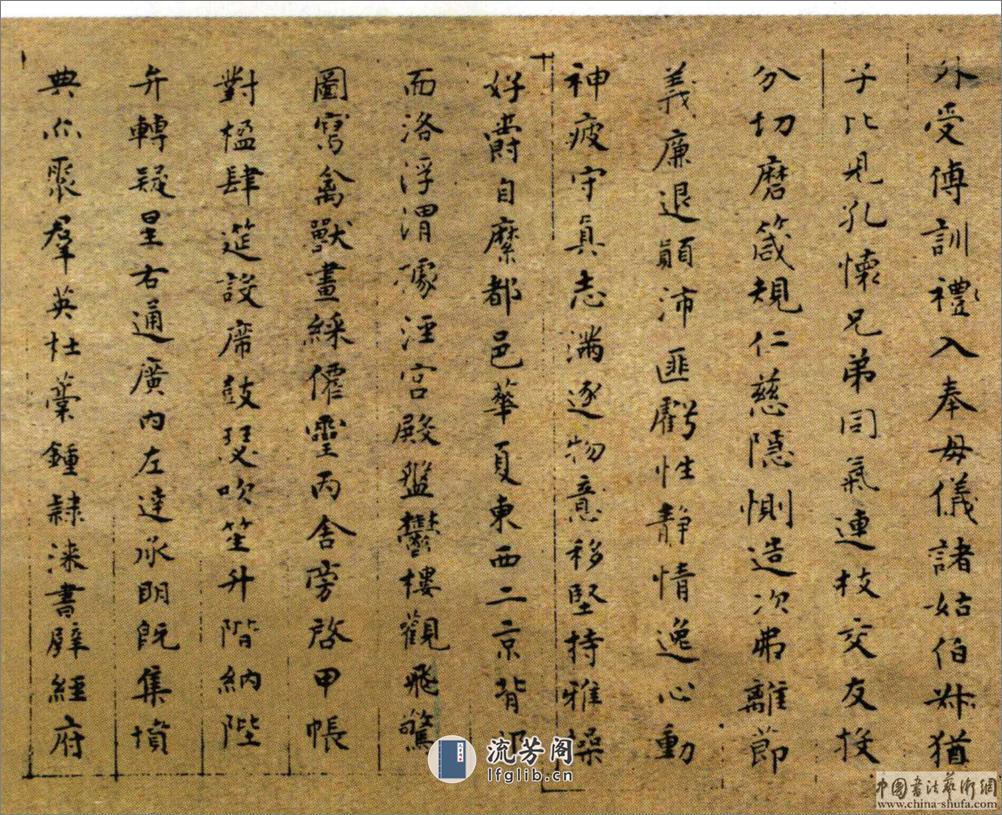 外受傅訓禮入奉母儀諸姑伯叔猶
子比兒孔懷兄弟同氣連枝交友投
分切磨箴規仁慈隱惻造次弗離節
義廉退顛沛匪虧性静情逸心動
神疲守真志滿逐物意移堅持雅操
好爵自縻都邑華夏東西二京背邙
面洛浮渭據涇宮殿盤鬱樓觀飛驚
圖寫禽獸畫綵僊靈丙舍旁啓甲帳
對楹肆筵設席鼓瑟吹笙升階納陛
弁轉疑星右通廣內左達承明既集墳
典亦聚群英杜藁鍾隸漆書壁經府
流芳阁
lfglib.cn
中国书法艺术網
www.china-shufa.com